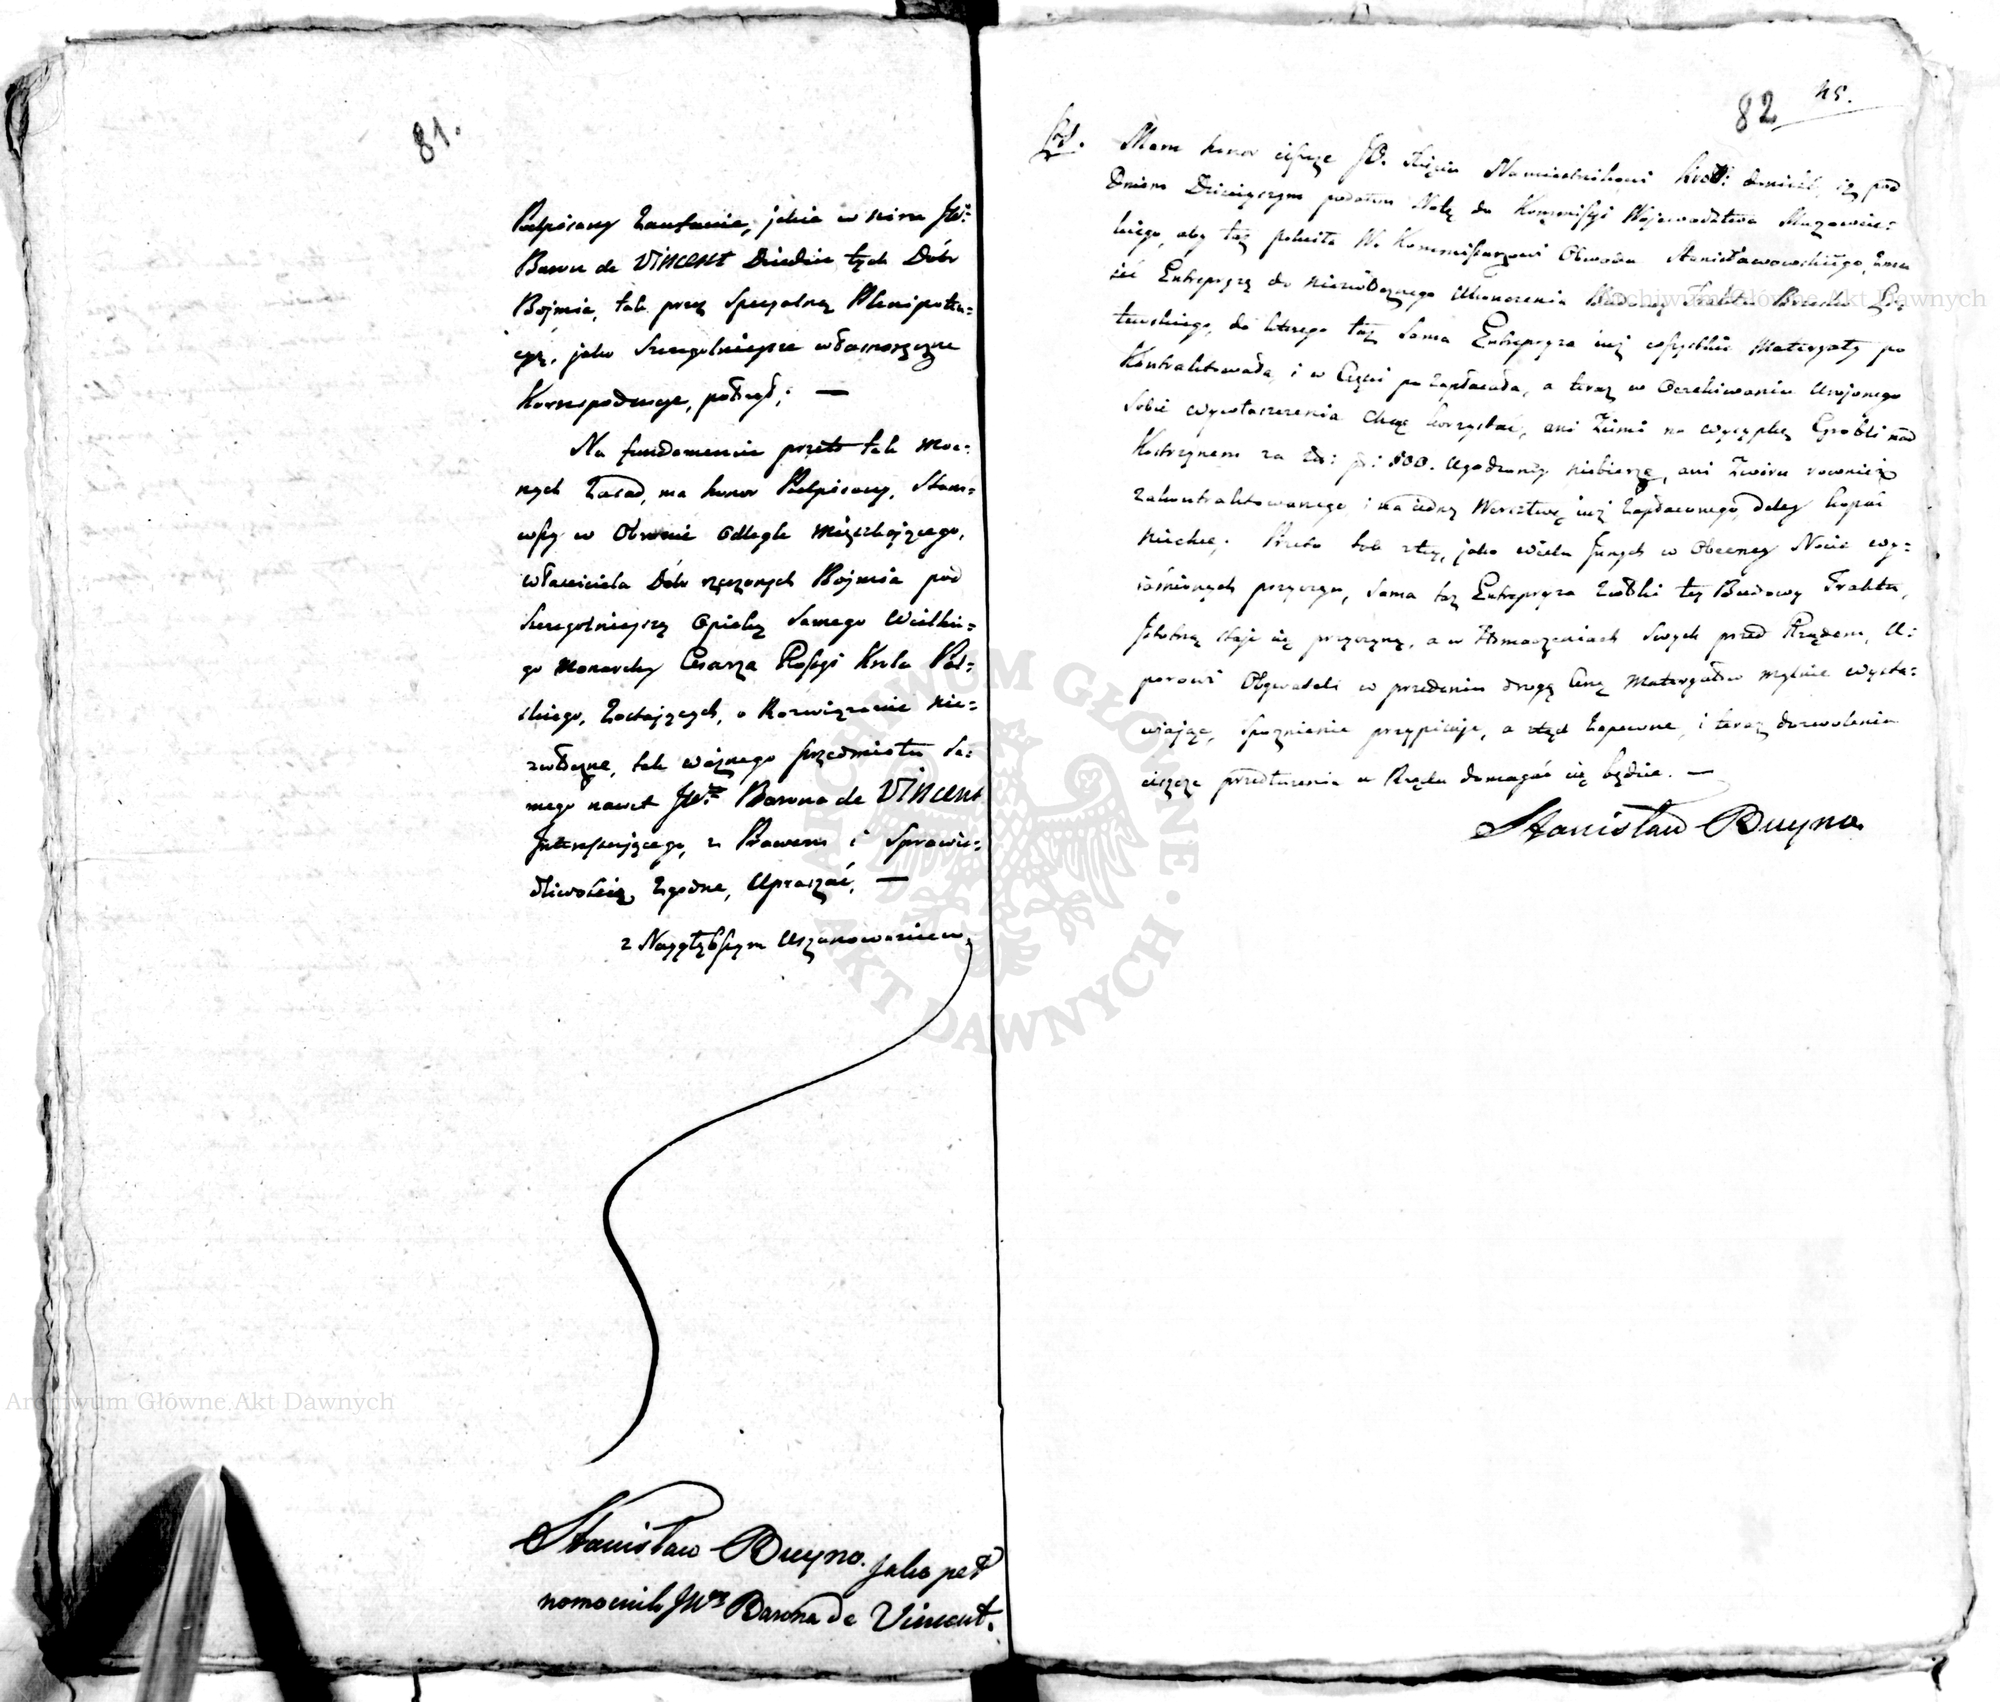 81.
Podpisany Zaufanie, jakie w nim JW:
Baron de VINCENT Dziedzic tych Dóbr
Bojmia, tak przez Specyalną Plenipoten=
cyą, jako Szczegolniejsze własnoręczne
Korrespodencye, położył; —
Na fundamencie przeto tak moc=
nych Zasad, ma honor Podpisany, Stan=
wszy w Obronie odlegle mieszkającego,
właściciela Dóbr rzeczonych Bojmia pod
Szczegolniejszą Opieką Samego Wielkie=
go Monarchy Cesarza Rossyi Krola Pol=
skiego, Zostających, o Rozwiązanie nie=
zwłoczne, tak ważnego przedmiotu Sa=
mego nawet JWo Barona de VINCENT
Interessującego, z Prawem i Sprawie=
dliwością Zgodne, Upraszać, —
z Naygłębszym Uszanowaniem
Stanisław Buyno. Jako peł
nomocnik JWo Barona de Vincent.
82 45.
Mam honor JO. Xięciu Namiestnikowi donieść, iż pod
Dniem Dzisieyszym podałem Notę do Kommissyi Województwa Mazowiec=
kiego, aby taż poleciła W Kommissarzowi Obwodu Stanisławowskiego,
Entrepryzę do niezwłocznego Ukończenia Budowy Traktu Brzesko Li=
tewskiego, do którego taż Sama Entrepryza już wszystkie Materyały po
Kontraktowała, i w Części po Zapłacała, a teraz w Oczekiwaniu Urojonego
Sobie wywłaszczenia Chcąc korzystać, ani Ziemi na wysypkę Grobli nad
Kostrzynem za 800. Ugodzoney niebierze, ani Żwiru rownież
Zakontraktowanego, i na jedną Werstwę już Zapłaconego, daley kopać
niechce; Przeto tak z tey, jako wielu Innych w Obecney Nocie wy=
jaśnionych przyczyn, Sama taż Entrepryza Zwłoki tey Budowy Traktu,
Istotną staje się przyczyną, a w Tłomaczeniach Swych przed Rządem, U=
porowi Obywateli w przedaniu drogą Cenę Materyałów mylnie wysta=
wiając, Spoznienie przypisuje, a ztąd Zapewne, i teraz dozwolenia
jeszcze przedłużenia u Rządu domagać się będzie. —
Stanisław Buyno.
Archiwum Główne Akt Dawnych
Archiwum Główne Akt Dawnych
ARCHIWUM GŁÓWNE · AKT DAWNYCH ·